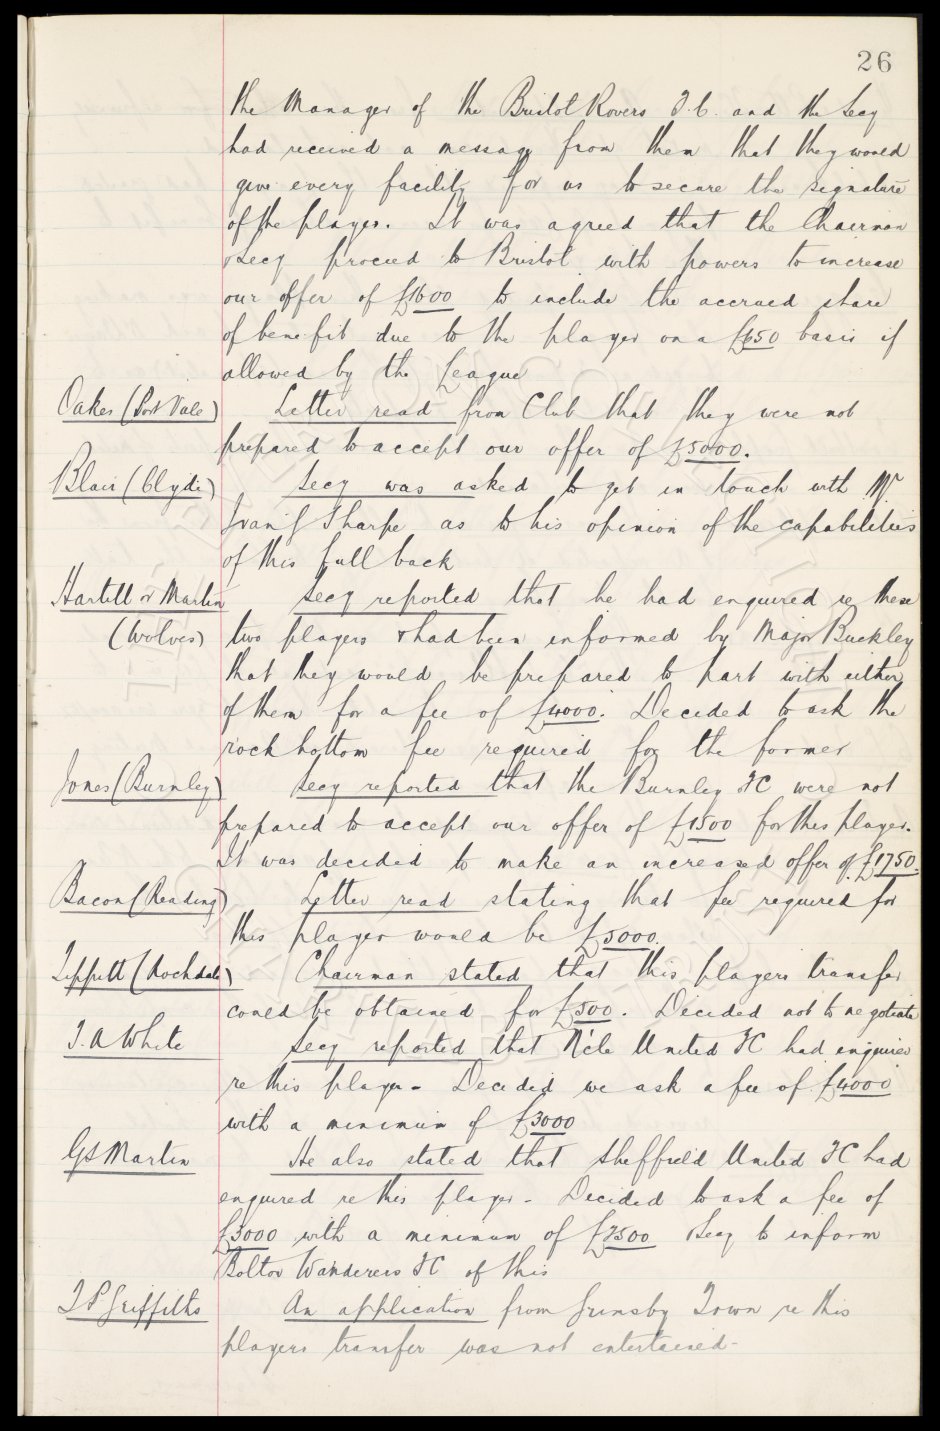 26
the Manager of the Bristol Rovers F.C. and the Secy
had received a message from them that they would
give every facility for us to secure the signature
of the player. It was agreed that the Chairman
& Secy proceed to Bristol with powers to increase
our offer of £1600 to include the accrued share
of benefit due to the player on a £650 basis if
allowed by the League
Oakes (Port Vale) Letter read from Club that they were not
prepared to accept our offer of £5000.
Blair (Clyde) Secy was asked to get in touch with Mr
Ivan Sharpe as to his opinion of the capabilities
of this full back
Hartill or Martin Secy reported that he had enquired re these
(Wolves) two players & had been informed by Major Buckley
that they would be prepared to part with either
of them for a fee of £4000. Decided to ask the
rock bottom fee required for the former
Jones (Burnley) Secy reported that the Burnley FC were not
prepared to accept our offer of £1500 for this player.
It was decided to make an increased offer of £1750.
Bacon (Reading) Letter read stating that fee required for
this player would be £5000.
Tippett (Rochdale) Chairman stated that this players transfer
could be obtained for £500. Decided not to negotiate
T.A White Secy reported that N'cle United FC had enquired
re this player - Decided we ask a fee of £4000
with a minimum of £3000
GS Martin He also stated that Sheffield United FC had
enquired re this player - Decided to ask a fee of
£3000 with a minimum of £2500 Secy to inform
Bolton Wanderers FC of this
T P Griffiths An application from Grimsby Town re this
players transfer was not entertained -